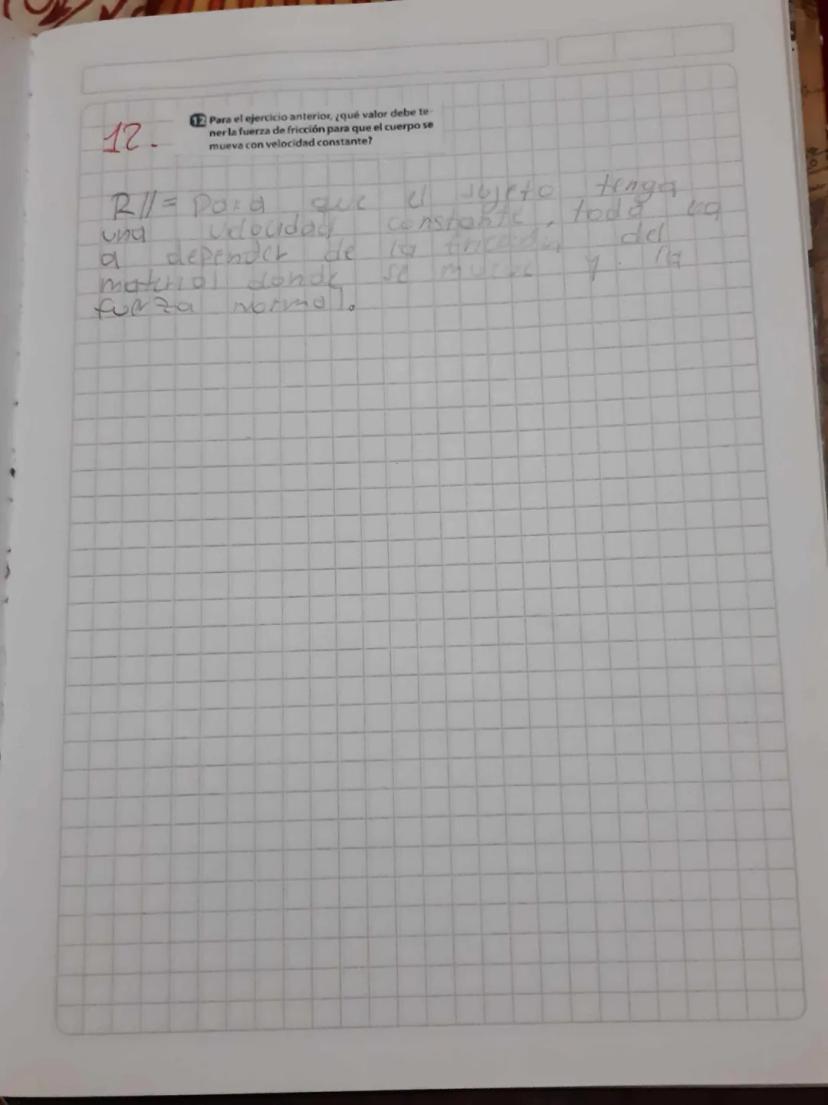 12.
12 Para el ejercicio anterior, ¿qué valor debe te-
ner la fuerza de fricción para que el cuerpo se
mueva con velocidad constante?
R// = Para que el sujeto tenga
una velocidad constante, todo va
a depender de la fricción del
material donde se mueve y la
fuerza normal.